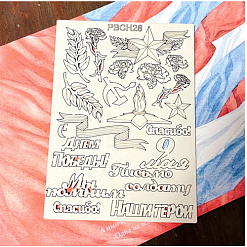 PBCH28
С
Спасибо!
Днем
9
Победы!
мая
Письмо
Мы
солдату
помним
Спасибо!
Наши герои